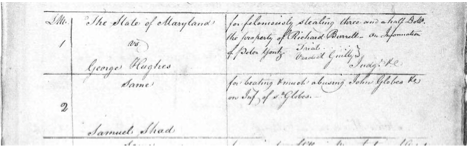 The State of Maryland
vs
George Hughes
1
for feloniously stealing three and a half
the property of Richard Burrell on Information
of Peter Gantz
Guilty
Judgt &c
Same
Samuel Shad
2
for beating & much abusing John Globes &c
on Inf. of sd. Globes.